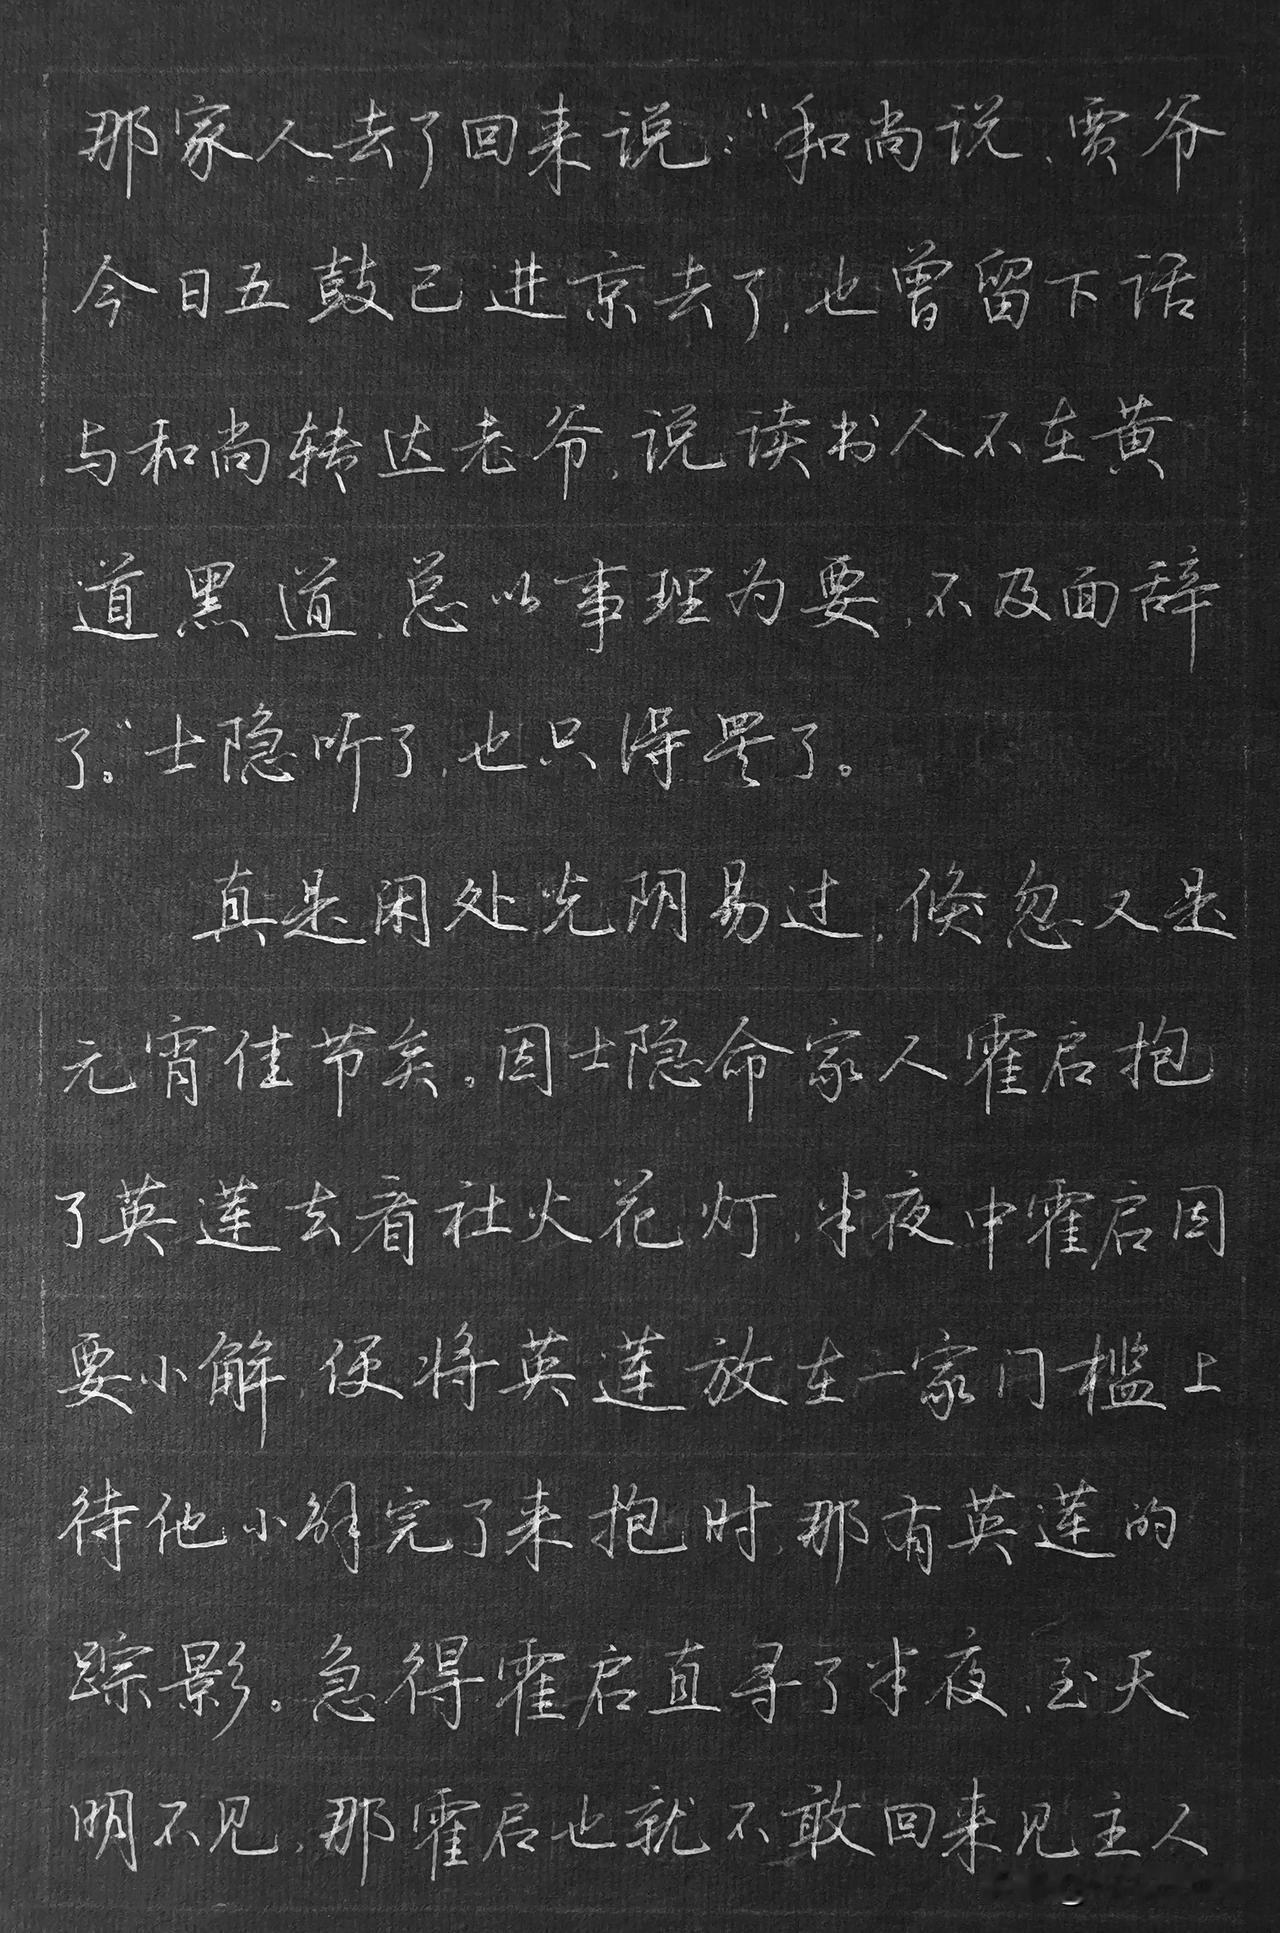 那家人去了回来说:“和尚说,贾爷
今日五鼓已进京去了,也曾留下话
与和尚转达老爷,说读书人不在黄
道黑道,总以事理为要,不及面辞
了。”士隐听了,也只得罢了。
真是闲处光阴易过,倏忽又是
元宵佳节矣。因士隐命家人霍启抱
了英莲去看社火花灯,半夜中霍启因
要小解,便将英莲放在一家门槛上
待他小解完了来抱时,那有英莲的
踪影。急得霍启直寻了半夜,至天
明不见,那霍启也就不敢回来见主人